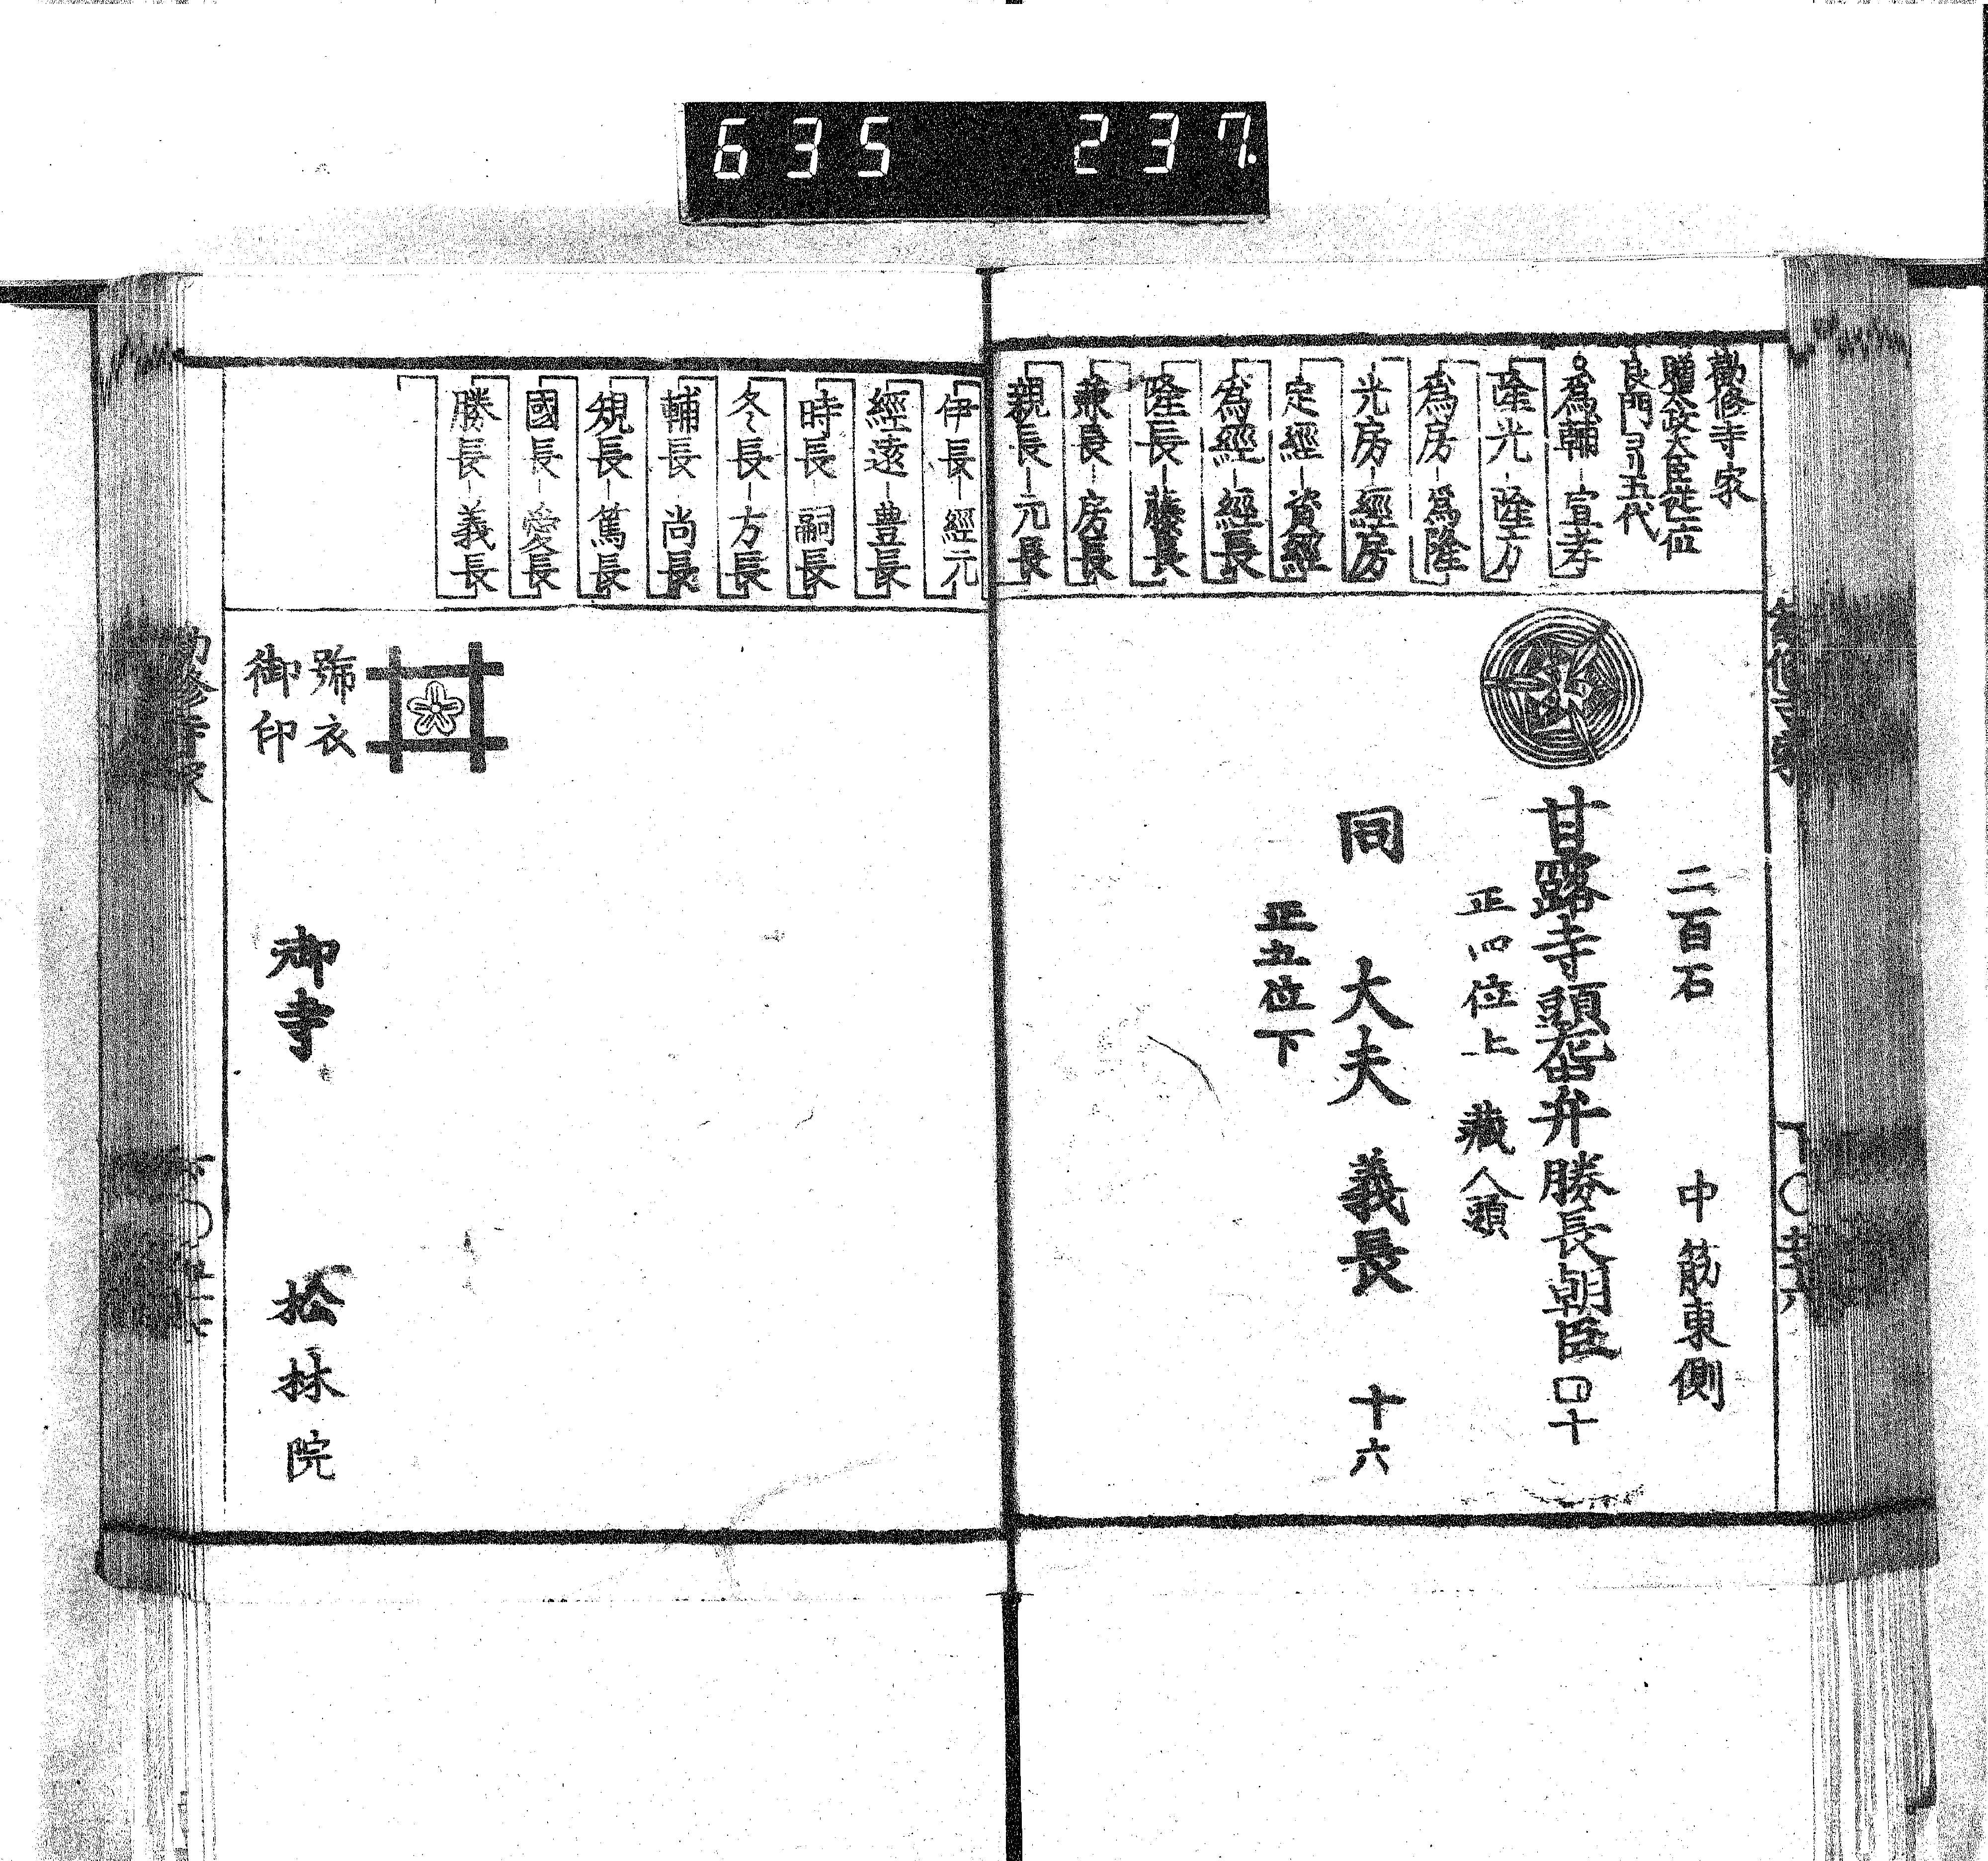 635 237.
勸修寺家
贈太政大臣従一位
良門ヨリ五代
爲輔-宣孝
隆光-隆方
爲房-爲隆
光房-經房
定經-資經
爲經-經長
隆長-藤長
兼長-房長
親長-元長
伊長-經元
經遠-豊長
時長-嗣長
冬長-方長
輔長-尚長
規長-篤長
國長-愛長
勝長-義長
二百石 中筋東側
甘露寺頭左中弁勝長朝臣 四十
正四位上 藏人頭
同 大夫 義長 十六
正五位下
號衣
御印
御寺 松林院